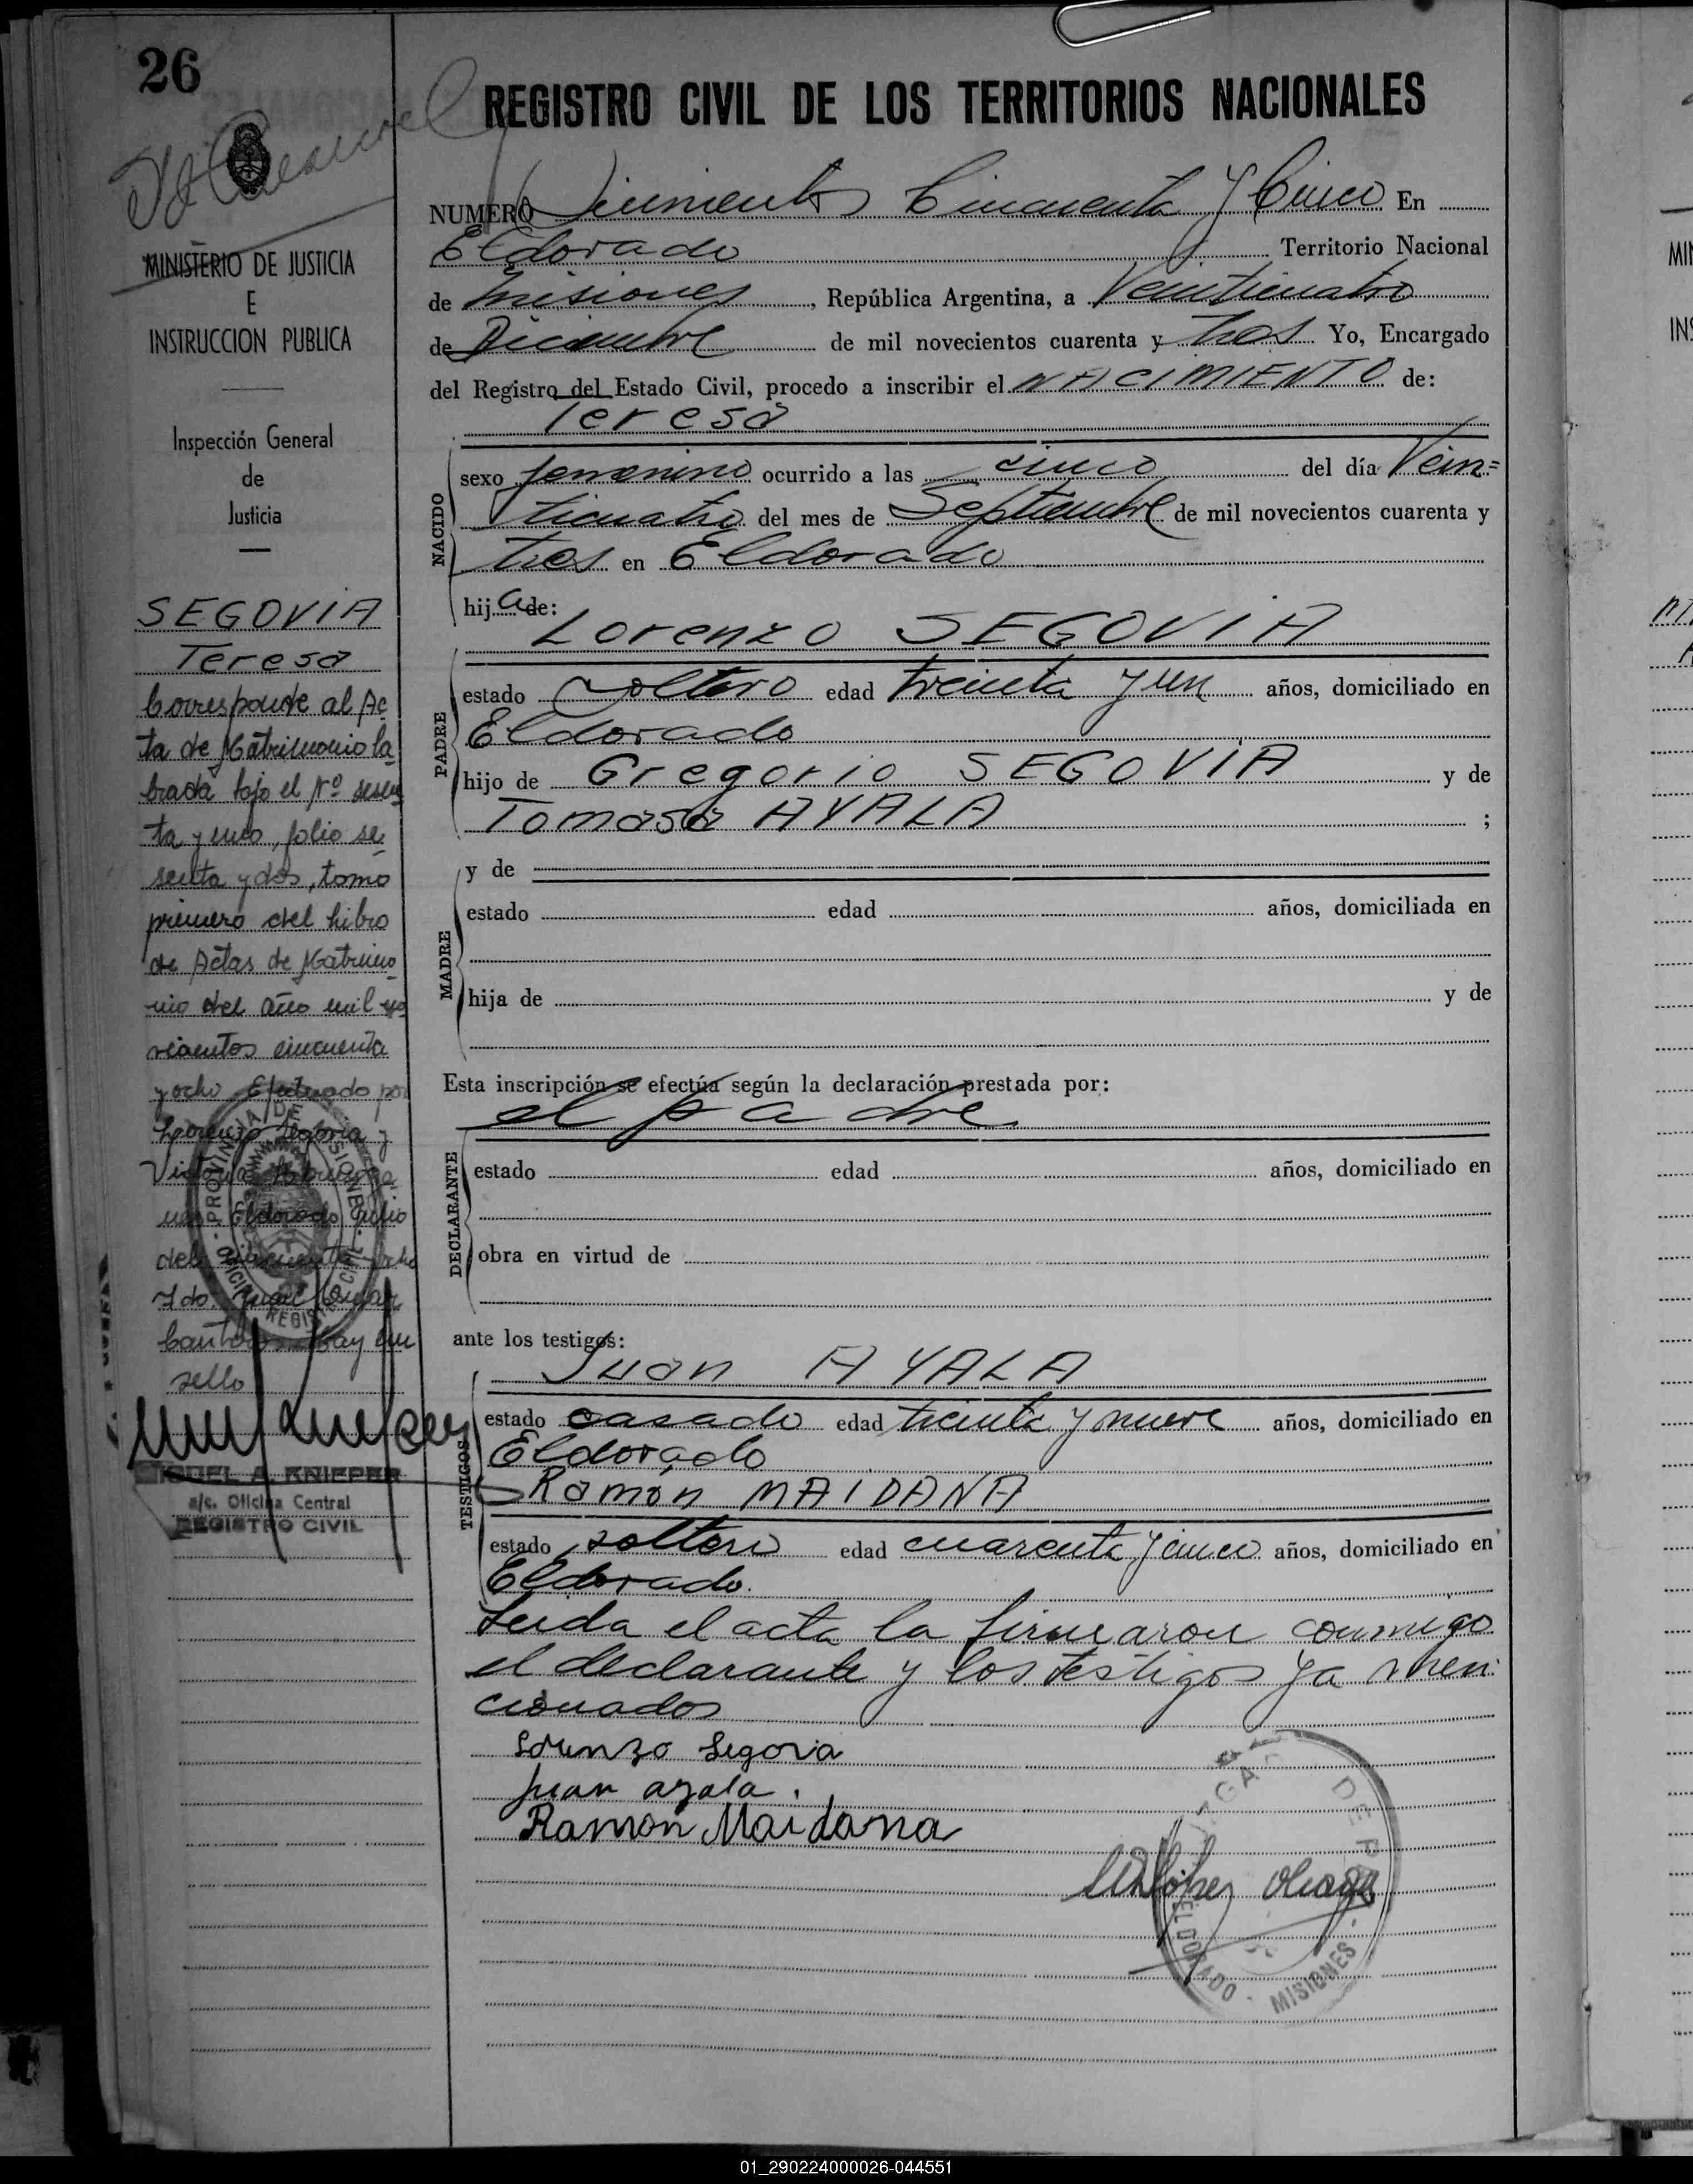 26
REGISTRO CIVIL DE LOS TERRITORIOS NACIONALES
MINISTERIO DE JUSTICIA
E
INSTRUCCION PUBLICA
Inspección General
de
Justicia
SEGOVIA
Teresa
Corresponde al Ac
ta de Matrimonio la
brada bajo el Nº sesen
ta y uno, folio se
senta y dos, tomo
primero del Libro
de Actas de Matrimo
nio del año mil no
vecientos cincuenta
y ocho Efectuado por
Lorenzo Segovia y
Eldorado Julio
sello
PROVINCIA DE MISIONES
MIGUEL A. KNIEPPER
a/c. Oficina Central
REGISTRO CIVIL
NUMERO Cincuenta y Cinco En
Eldorado Territorio Nacional
de Misiones, República Argentina, a Veinticuatro
de Diciembre de mil novecientos cuarenta y tres Yo, Encargado
del Registro del Estado Civil, procedo a inscribir el NACIMIENTO de:
Teresa
NACIDO
sexo femenino ocurrido a las cinco del día Vein=
ticuatro del mes de Septiembre de mil novecientos cuarenta y
tres en Eldorado
hija de:
Lorenzo SEGOVIA
PADRE
estado soltero edad treinta y un años, domiciliado en
Eldorado
hijo de Gregorio SEGOVIA y de
Tomasa AYALA ;
MADRE
y de
estado edad años, domiciliada en
hija de y de
Esta inscripción se efectúa según la declaración prestada por:
el padre
DECLARANTE
estado edad años, domiciliado en
obra en virtud de
ante los testigos:
Juan AYALA
TESTIGOS
estado casado edad treinta y nueve años, domiciliado en
Eldorado
Ramón MAIDANA
estado soltero edad cuarenta y cinco años, domiciliado en
Eldorado.
Leida el acta la firmaron conmigo
el declarante y los testigos ya men
cionados
Lorenzo Segovia
Juan ayala.
Ramon Maidana
ELDORADO - MISIONES
01_290224000026-044551